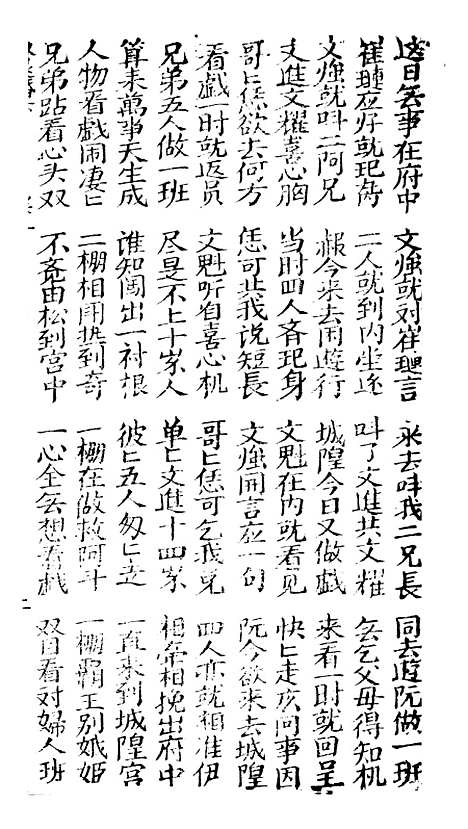 这日无事在府中 文強就对崔璉言 永去叫我二兄長 同去遊阮做一班
崔璉应好就玘 二人就到内坐 叫了文進共文耀 无乞父母得知机
文強就叫二阿兄 報今来去闲遊行 城隍今日又做戯 来看一时就回呈
文進文耀喜心胸 当时四人齐玘身 文魁在内就看见 快匕走孩问事因
哥匕恁欲去何方 恁可共我说短長 文強開言应一句 阮今欲来去城隍
看戯一时就返员 文魁听着喜心机 哥匕恁可乞我 四人亦就相准伊
兄弟五人做一班 尽是不上十岁人 单匕文進十四岁 相牵相挽出府中
算来萬事天生成 谁知闖出一衬根 彼匕五人匆匕走 一直来到城隍宫
人物看戯闹凄匕 二棚相闹热到奇 一棚在做救阿斗 一棚霸王别姬
兄弟跕看心头双 不觉由松到宫中 一心全无想看戯 双目看对婦人班